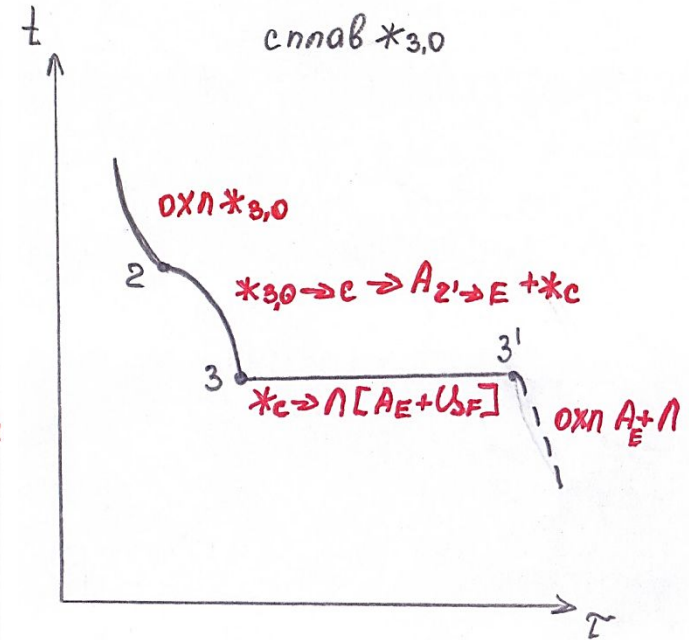 t
сплав ж3,0
охл ж3,0
2
ж3,0→с → A2'→E + жс
3'
3
жс→Л[AE+ЦF]
охл AE+Л
τ